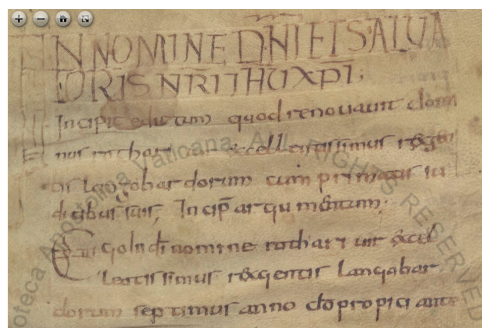 IN NOMINE DNI EI SALUA
TORIS NRI IHU XPI;
Incipit edictum quod renovavit dom
nus rothari excellentissimus rex gen
tis langobardorum cum primatis iu
dicibus suis, Incip arqumentum;
Ego in di nomine rothari vir excel
lentissimus rex gentis langobar
dorum septimus anno do propiciante